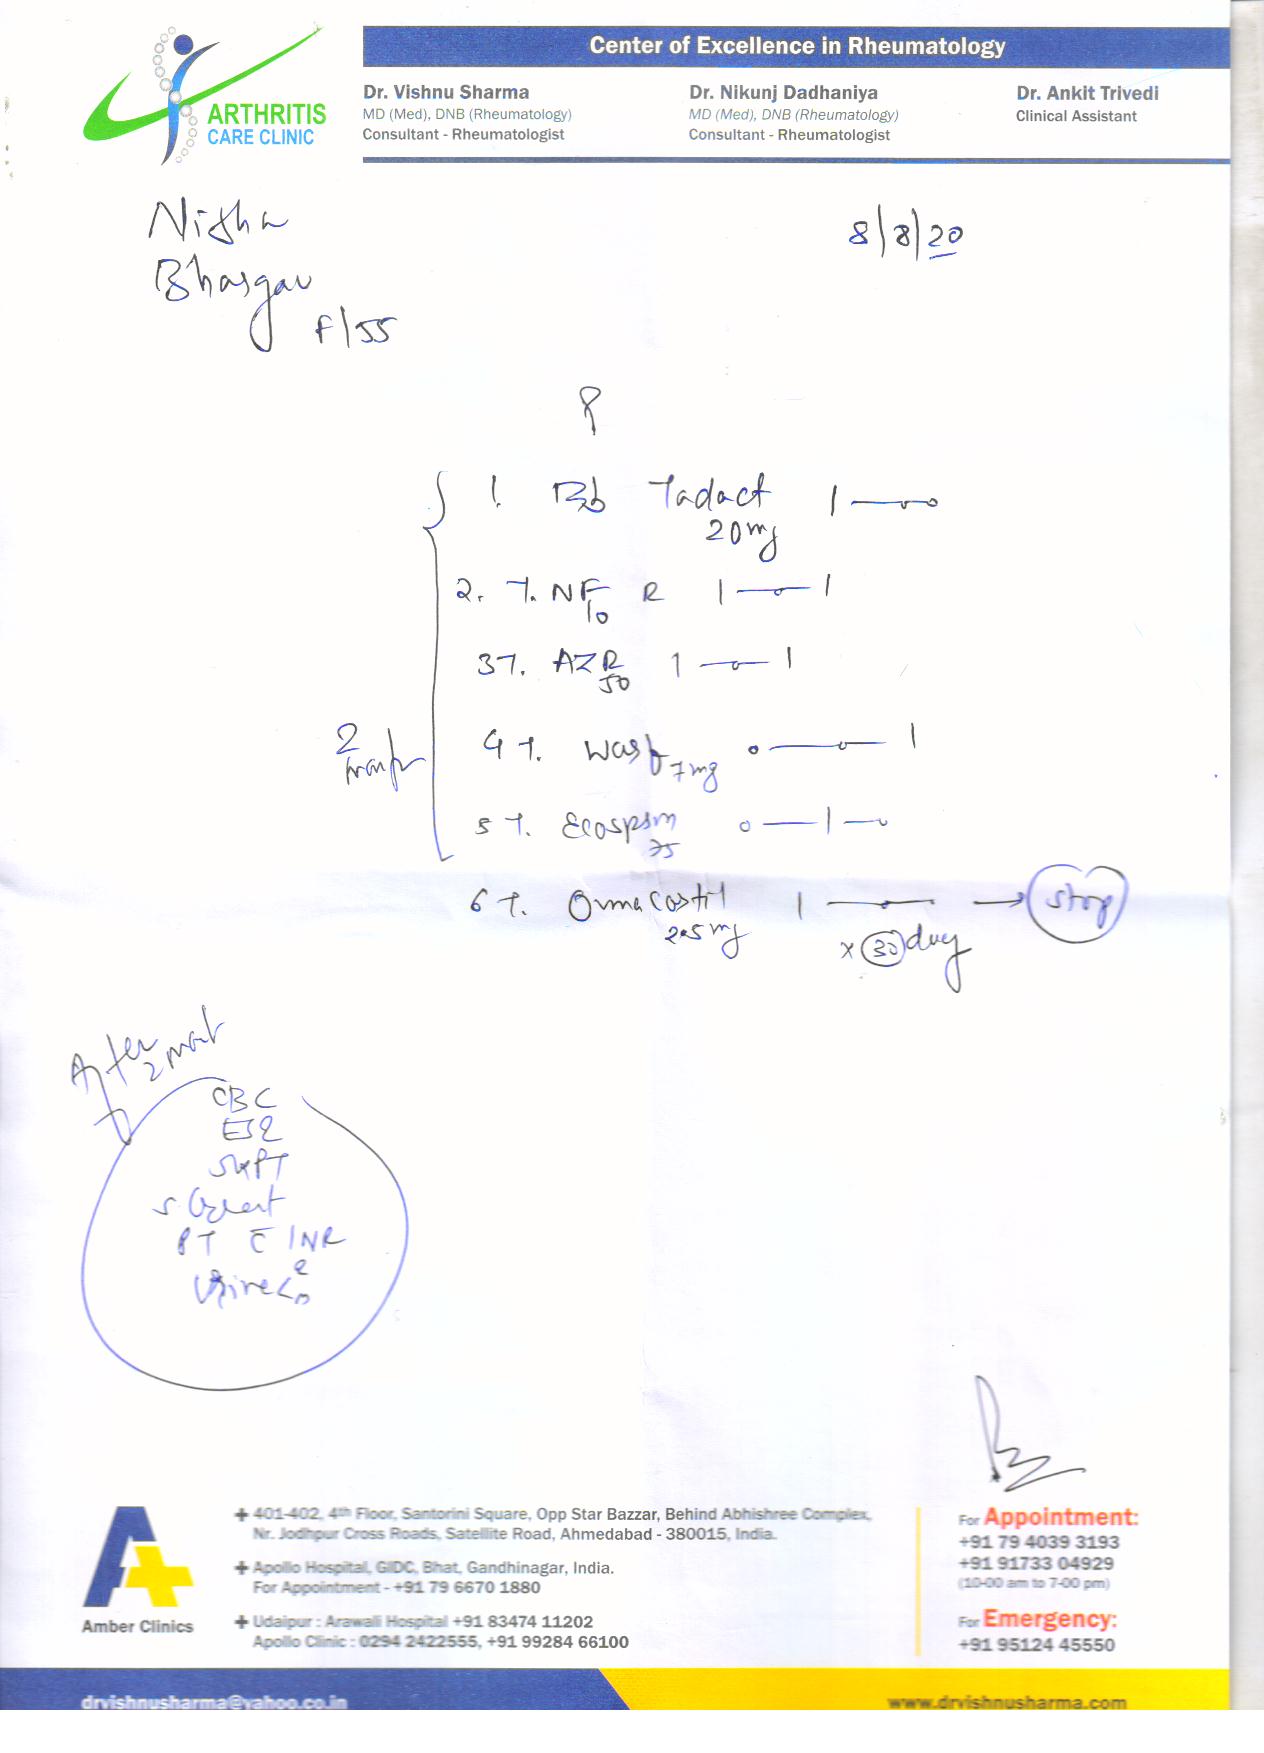 ARTHRITIS
CARE CLINIC
Center of Excellence in Rheumatology
Dr. Vishnu Sharma
MD (Med), DNB (Rheumatology)
Consultant - Rheumatologist
Dr. Nikunj Dadhaniya
MD (Med), DNB (Rheumatology)
Consultant - Rheumatologist
Dr. Ankit Trivedi
Clinical Assistant
Nisha
Bhargav
F/55
8/8/20
1. Tab Tadact 1—o—o
20mg
2. T. NF R 1—o—1
10
3 T. AZR 1—o—1
50
4 T. Warf 7mg o—o—1
5 T. Ecosprin o—1—o
75
2
6 T. 1 — → Stop
2.5 mg
x 30 day
After
2 mont
CBC
ESR
SGPT
S. Creat
PT c̄ INR
Urine
Amber Clinics
+ 401-402, 4th Floor, Santorini Square, Opp Star Bazzar, Behind Abhishree Complex,
Nr. Jodhpur Cross Roads, Satellite Road, Ahmedabad - 380015, India.
+ Apollo Hospital, GIDC, Bhat, Gandhinagar, India.
For Appointment - +91 79 6670 1880
+ Udaipur : Arawali Hospital +91 83474 11202
Apollo Clinic : 0294 2422555, +91 99284 66100
For Appointment:
+91 79 4039 3193
+91 91733 04929
(10-00 am to 7-00 pm)
For Emergency:
+91 95124 45550
drvishnusharma@yahoo.co.in
www.drvishnusharma.com